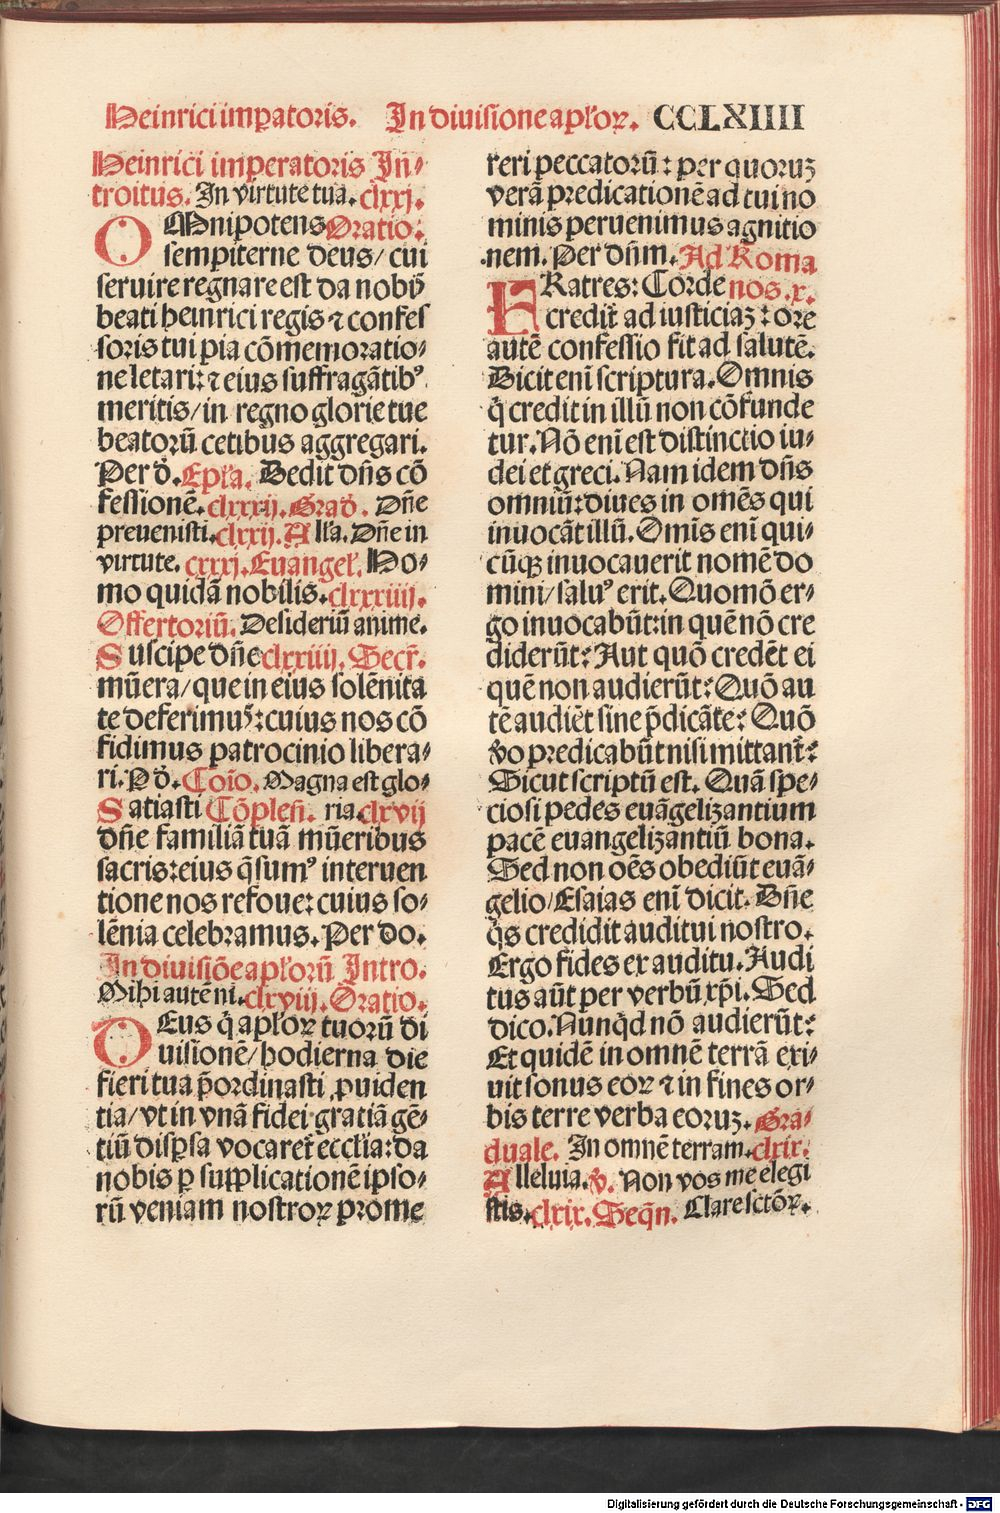 Heinrici imꝑatoris. In diuisione apl'oꝝ. CCLXIIII
Heinrici imperatoris In-
troitus. In virtute tua. clxxj.
OMnipotens Oratio:
sempiterne deus/ cui
seruire regnare est da nobis
beati heinrici regis ⁊ confes
soris tui pia cōmemoratio-
ne letari: ⁊ eius suffragātibꝰ
meritis/ in regno glorie tue
beatorū cetibus aggregari.
Per d̄. Epl'a. Dedit dn̄s cō
fessionē. clxxxij. Grad̄. Dn̄e
preuenisti. clxxij. All'a. Dn̄e in
virtute. cxxxj. Euangel'. Ho-
mo quidā nobilis. clxxxiiij.
Offertoriū. Desideriū anime.
Suscipe dn̄e clxxiiij. Secr̄.
mūera/ que in eius solēnita
te deferimus: cuius nos cō
fidimus patrocinio libera-
ri. P d̄. Coīo. Magna est glo-
Satiasti Cōplen̄. ria. clxvij
dn̄e familiā tuā mūeribus
sacris: eius q̄sumꝰ interuen
tione nos refoue: cuius so-
lēnia celebramus. Per do.
In diuisiōe apl'orū Intro.
Mihi autē ni. clxviij. Oratio.
DEus q̄ apl'oꝝ tuorū di
uisionē/ hodierna die
fieri tua p̄ordinasti ꝓuiden
tia/ vt in vnā fidei gratiā gē-
tiū disꝑsa vocaret̄ eccl'ia: da
nobis ꝑ supplicationē ipso-
rū veniam nostroꝝ prome
reri peccatorū: per quoruꝫ
verā predicationē ad tui no
minis peruenimus agnitio
nem. Per dn̄m. Ad Roma
FRatres: Corde nos. x.
credit̄ ad iusticiaꝫ: ore
autē confessio fit ad salutē.
Dicit enī scriptura. Omnis
q̄ credit in illū non cōfunde
tur. Nō enī est distinctio iu-
dei et greci. Nam idem dn̄s
omniū: diues in omēs qui
inuocāt illū. Omīs enī qui-
cūqꝫ inuocauerit nomē do
mini/ saluꝰ erit. Quomō er-
go inuocabūt: in quē nō cre
diderūt? Aut quō credēt ei
quē non audierūt? Quō au
tē audiēt sine p̄dicāte? Quō
v̄o predicabūt nisi mittant̄?
Sicut scriptū est. Quā spe-
ciosi pedes euāgelizantium
pacē euangelizantiū bona.
Sed non oēs obediūt euā-
gelio/ Esaias enī dicit. Dn̄e
q̄s credidit auditui nostro.
Ergo fides ex auditu. Audi
tus aūt per verbū xp̄i. Sed
dico. Nunq̄d nō audierūt?
Et quidē in omnē terrā exi-
uit sonus eoꝝ ⁊ in fines or-
bis terre verba eoruꝫ. Gra-
duale. In omnē terram. clxix.
Alleluia. v̄. Non vos me elegi
stis. clxix. Seqn̄. Clare sctōꝝ.
Digitalisierung gefördert durch die Deutsche Forschungsgemeinschaft - DFG